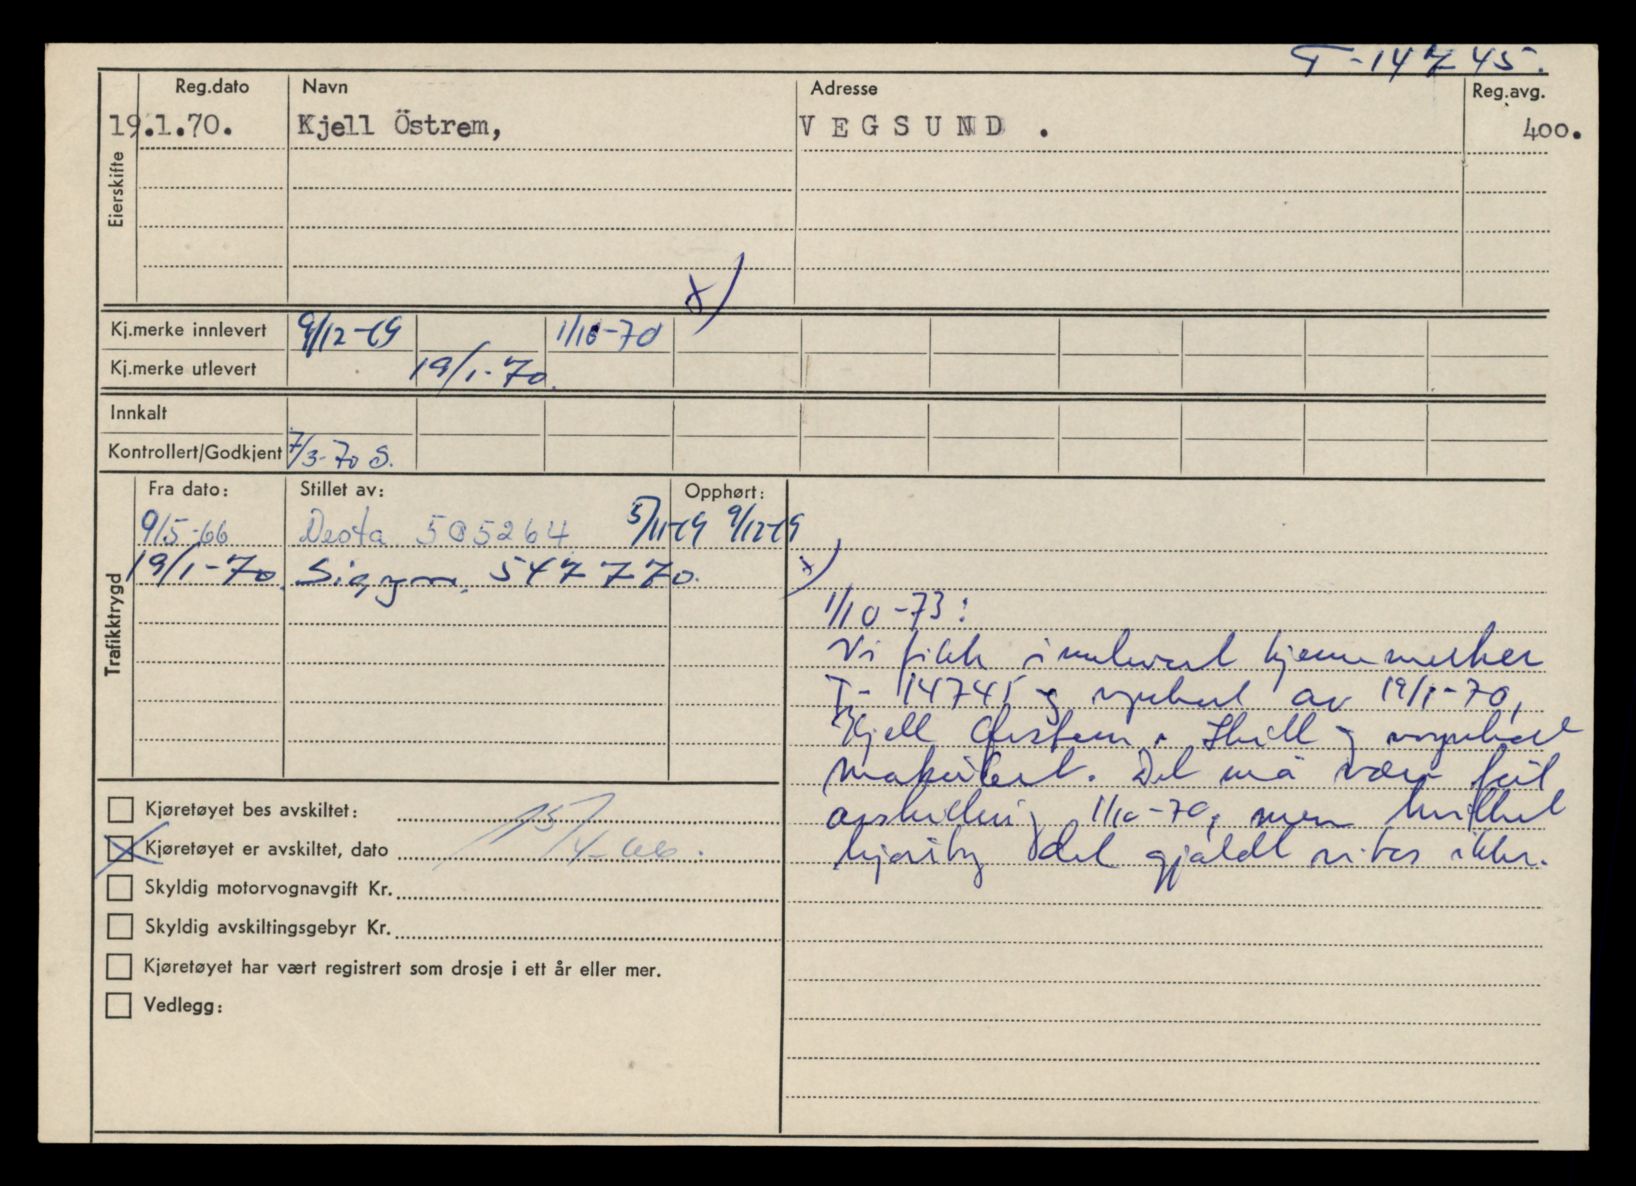 T-14745.
Reg.dato Navn Adresse Reg.avg.
19.1.70. Kjell Östrem, VEGSUND . 400.
Eierskifte
x)
Kj.merke innlevert 9/12-69 1/10-70
Kj.merke utlevert 19/1-70.
Innkalt
Kontrollert/Godkjent 7/3-70 S.
Trafikktrygd
Fra dato: Stillet av: Opphørt:
9/5-66 Desta 505264 5/11-69 9/12-69
19/1-70 Sigyn 547770.
x)
1/10-73:
Vi fikk innlevert kjennemerker
T-14745 og vognkort av 19/1-70,
Kjell Østrem. Skilt og vognkort
makulert. Det må være feil
avskilting 1/10-70, men hvilket
kjøretøy det gjaldt vites ikke.
Kjøretøyet bes avskiltet:
Kjøretøyet er avskiltet, dato 15/4-66.
Skyldig motorvognavgift Kr.
Skyldig avskiltingsgebyr Kr.
Kjøretøyet har vært registrert som drosje i ett år eller mer.
Vedlegg: